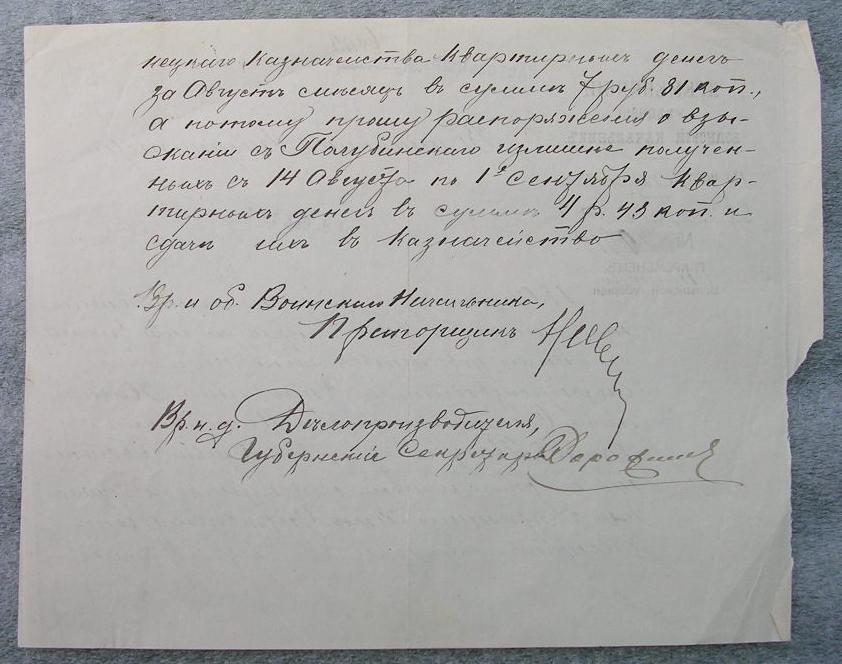 нецкаго Казначейства Квартирныхъ денегъ
за Августъ мѣсяцъ въ суммѣ 7 руб. 81 коп.,
а потому прошу распоряженія о взы-
сканіи съ Полубинскаго излишне получен-
ныхъ съ 14 Августа по 1е Сентября Квар-
тирныхъ денегъ въ суммѣ 4 р. 43 коп. и
сдачѣ ихъ въ Казначейство
Вр. и об. Воинскаго Начальника,
Прапорщикъ
Вр. и. д. Дѣлопроизводителя,
Губернскій Секретарь